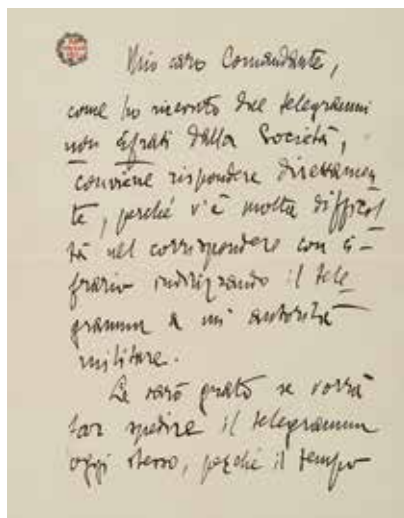 Mio caro Comandante,
come ho ricevuto due telegrammi
non cifrati dalla Società,
conviene rispondere direttamen
te, perché v'è molta difficol
tà nel corrispondere con ci-
frario indirizzando il tele
gramma a un autorità
militare.
Le sarò grato se vorrà
far spedire il telegramma
oggi stesso, perché il tempo